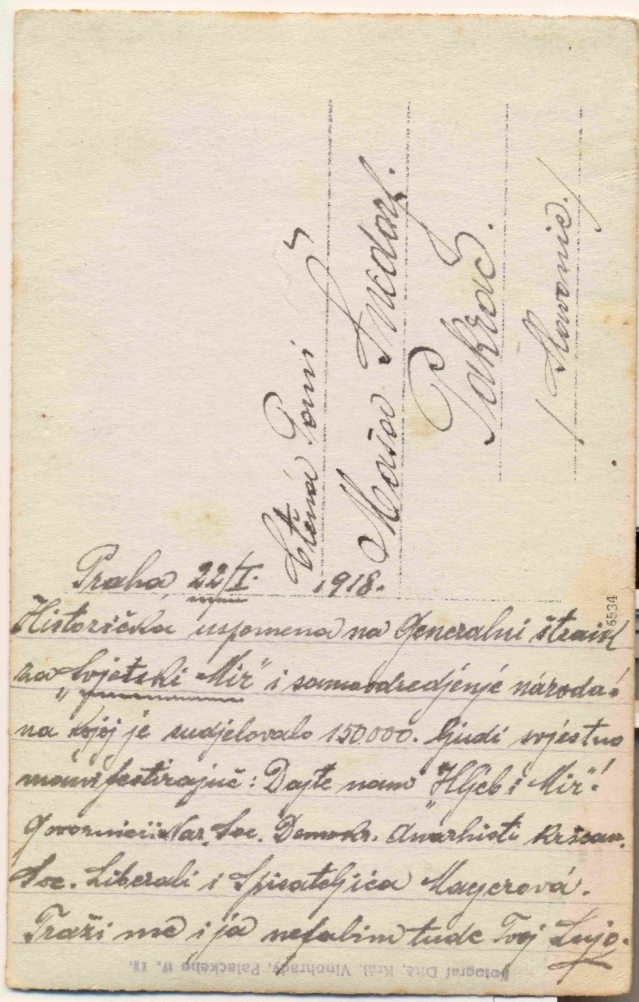 Ctěná Paní
Maša Snedorf.
Pakrac.
/Slavonie./
Praha, 22/I. 1918.
Historička uspomena na Generalni štrajk
za "Svjetski Mir" i samoodredjenje národa!
na kojoj je sudjelovalo 150.000. ljudi svjestno
manifestirajuč: Dajte nam "Hljeb i Mir"!
Govornici: Nar. Soc. Demokr. Anarhisti kršćan.
Soc. Liberali i Spisateljica Mayerová.
Traži me i ja nefalim tude Tvoj Lujo.
6534
Fotograf Dítě, Král. Vinohrady, Palackého tř. 11.